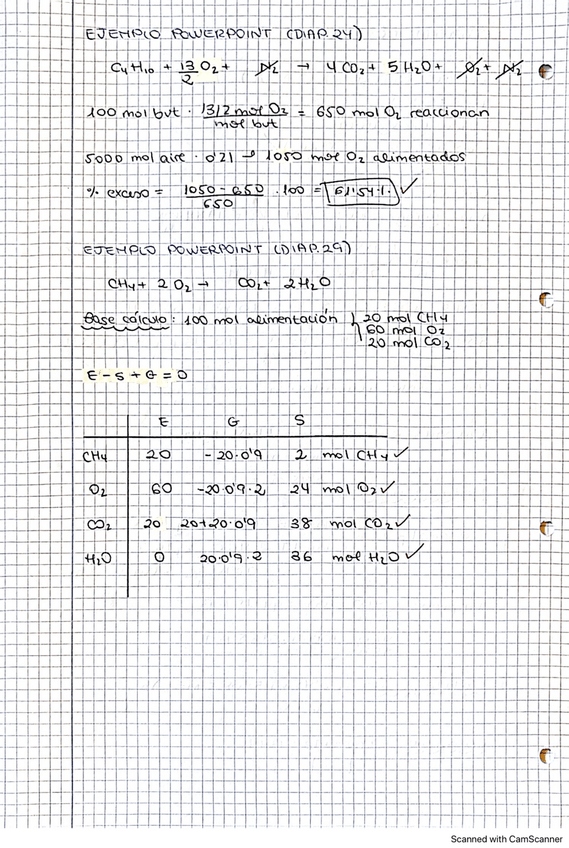 EJEMPLO POWERPOINT (DIAP.24)
C4H10 + 13/2 O2 + N2 → 4 CO2 + 5 H2O + O2 + N2
100 mol but · 13/2 mol O2 / mol but = 650 mol O2 reaccionan
5000 mol aire · 0'21 → 1050 mol O2 alimentados
% exceso = 1050 - 650 / 650 · 100 = 61'54%. ✓
EJEMPLO POWERPOINT (DIAP.29)
CH4 + 2 O2 → CO2 + 2 H2O
Base cálculo: 100 mol alimentación 20 mol CH4
60 mol O2
20 mol CO2
E - S + G = 0
E G S
CH4 20 - 20·0'9 2 mol CH4 ✓
O2 60 -20·0'9·2 24 mol O2 ✓
CO2 20 20+20·0'9 38 mol CO2 ✓
H2O 0 20·0'9·2 36 mol H2O ✓
Scanned with CamScanner